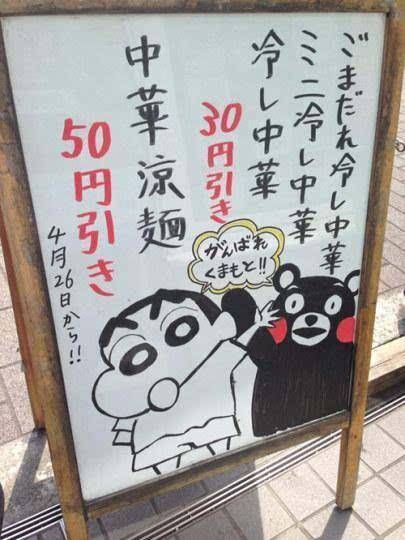 ごまだれ冷し中華
ミニ冷し中華
冷し中華
30円引き
中華涼麺
50円引き
4月26日から!!
がんばれ
くまもと!!